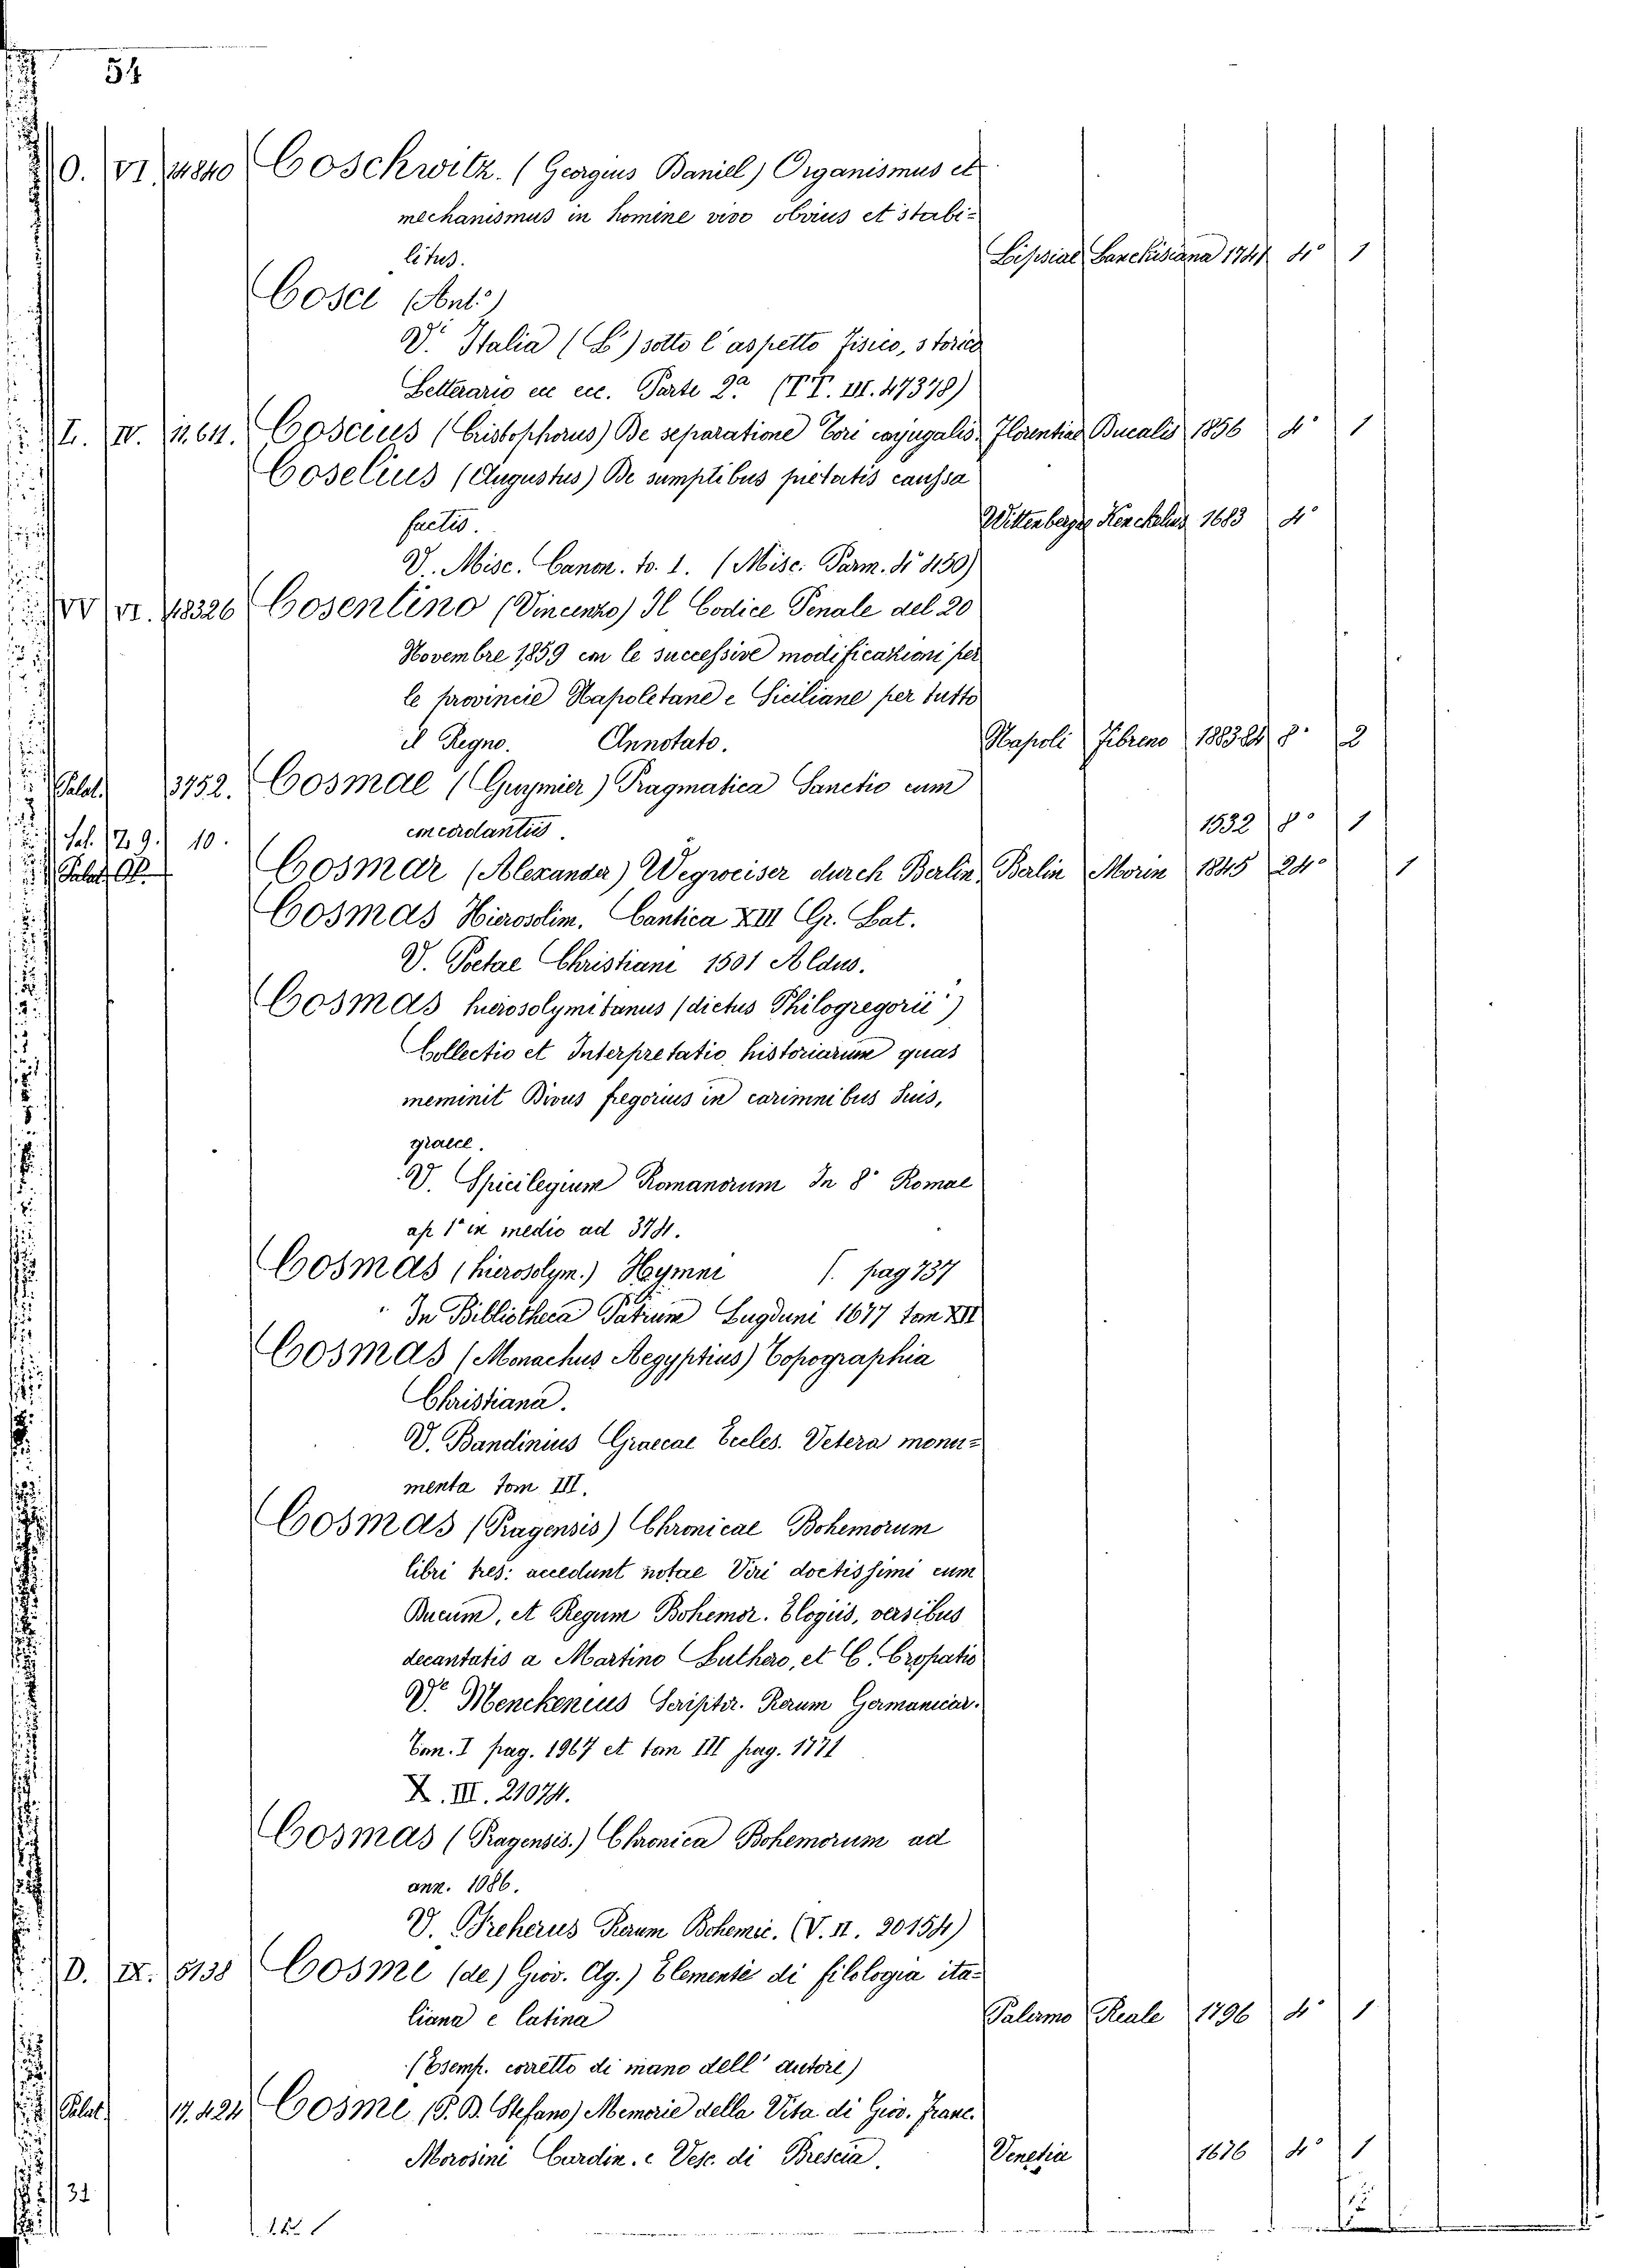 54
O. VI. 14840 Coschwitz. (Georgius Daniel) Organismus et
mechanismus in homine vivo obvius et stabi-
litus. Lipsiae Lanckisiana 1741 4° 1
Cosci (Ant°)
V.i Italia (L') sotto l'aspetto fisico, storico
Letterario ecc ecc. Parte 2a (TT. III. 47378)
L. IV. 11.611. Coscius (Cristophorus) De separatione Tori conjugalis. Florentiae Bucalis 1856 4° 1
Coselius (Augustus) De sumptibus pietatis caussa
factis. Wittenbergae Henckelius 1683 4°
V. Misc. Canon. to. 1. (Misc. Parm. 4° 1150)
VV VI. 48326 Cosentino (Vincenzo) Il Codice Penale del 20
Novembre 1859 con le successive modificazioni per
le provincie Napoletane e Siciliane per tutto
il Regno. Annotato. Napoli Fibreno 188384 8° 2
Palat. 3752. Cosmae (Guymier) Pragmatica Sanctio cum
concordantiis. 1532 8° 1
Sal. 29. 10.
Palat. Cosmar (Alexander) Wegweiser durch Berlin. Berlin Morin 1845 24° 1
Cosmas Hierosolim. Cantica XIII Gr. Lat.
V. Poetae Christiani 1501 Aldus.
Cosmas hierosolymitanus (dictus Philogregorii')
Collectio et Interpretatio historiarum quas
meminit Divus fregorius in carimnibus suis,
graece.
V. Spicilegium Romanorum In 8° Romae
ap 1° in medio ad 374.
Cosmas (hierosolym.) Hymni f. pag 737
In Bibliotheca Patrum Lugduni 1677 tom XII
Cosmas (Monachus Aegyptius) Topographia
Christiana.
V. Bandinius Graecae Eccles. Vetera monu-
menta tom III.
Cosmas (Pragensis) Chronicae Bohemorum
libri tres: accedunt notae Viri doctissimi cum
Ducum, et Regum Bohemor. Elogiis, versibus
decantatis a Martino Luthero, et C. Cropatio
V.e Menckenius Scriptor. Rerum Germanicar.
Tom. I pag. 1967 et tom III pag. 1771
X. III. 21074.
Cosmas (Pragensis.) Chronica Bohemorum ad
ann. 1086.
V. Freherus Rerum Bohemic. (V. II. 20154)
D. IX. 5138 Cosmi (de) Giov. Ag.) Elementi di filologia ita-
liana e latina Palermo Reale 1796 4° 1
(Esemp. corretto di mano dell' autore)
Palat. 17.424 Cosmi (P. D. Stefano) Memorie della Vita di Giov. Franc.
Morosini Cardin. e Vesc. di Brescia. Venetia 1676 4° 1
31